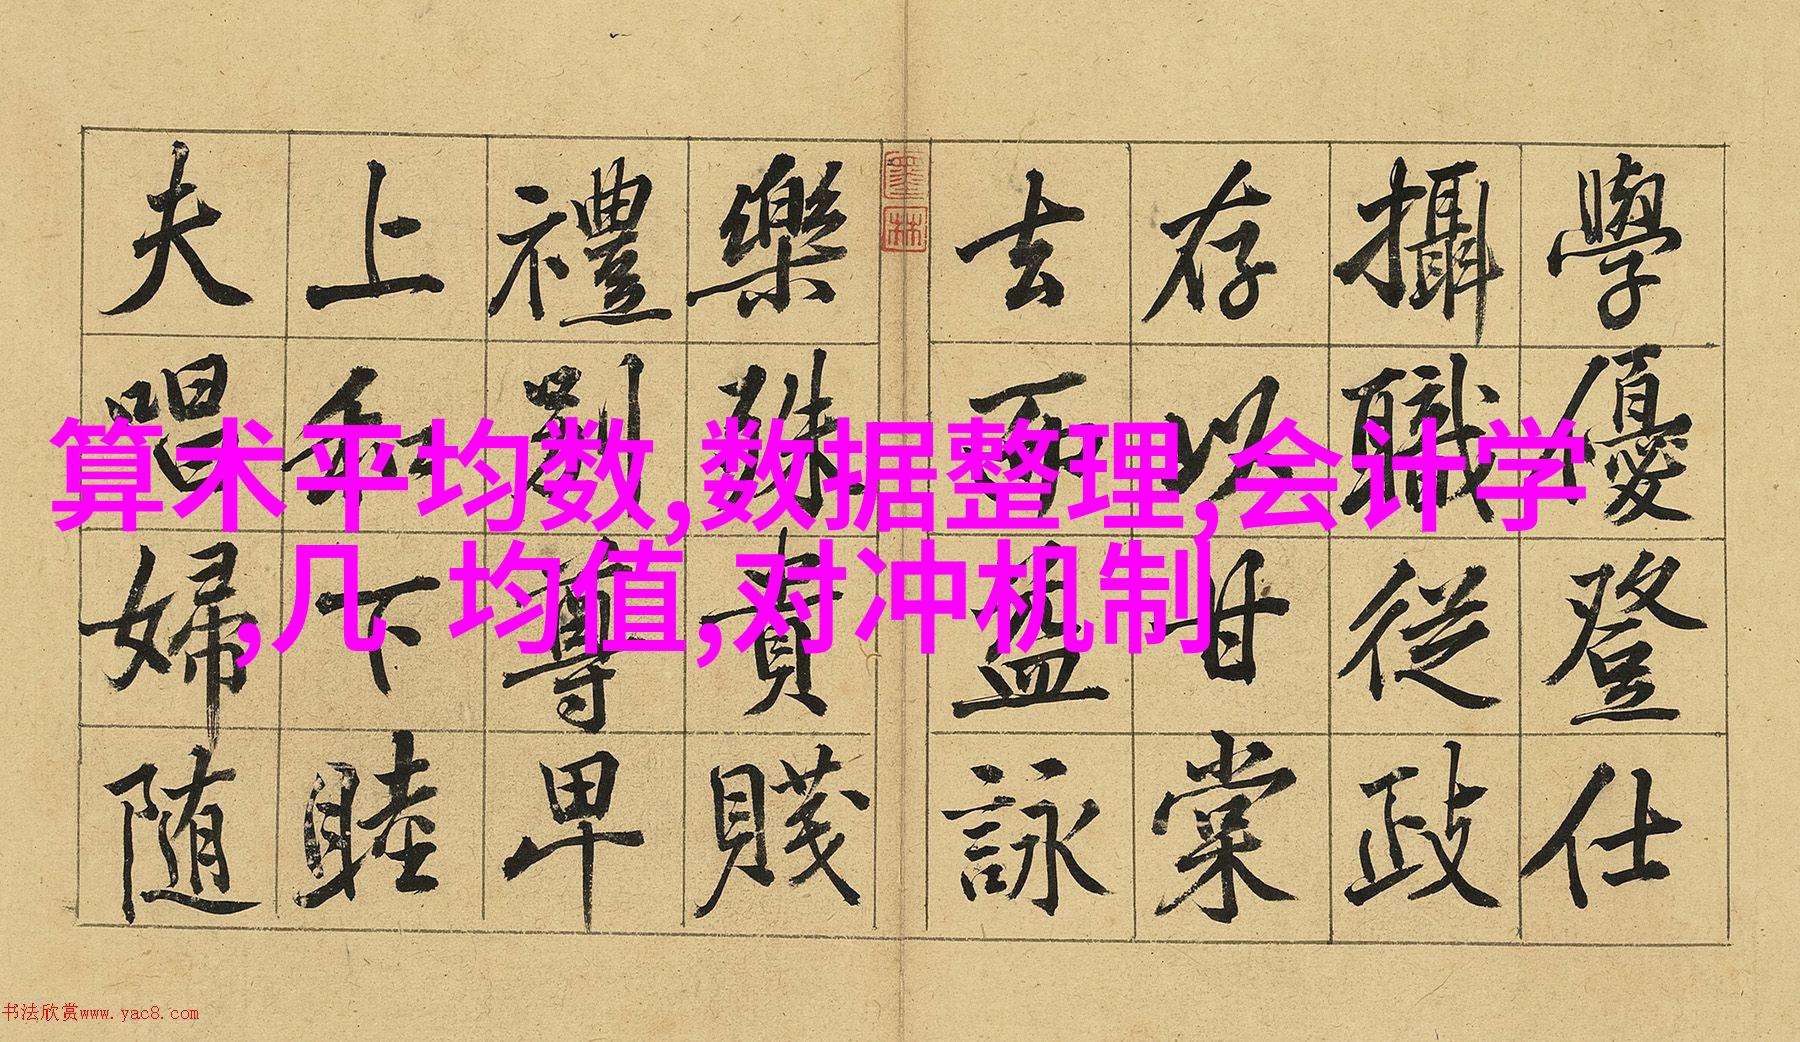 學優登仕
攝職從政
存以甘棠
去而益詠
樂殊貴賤
禮別尊卑
上和下睦
夫唱婦随
墨林
算术平均数,数据整理,会计学
,几 均值,对冲机制
书法欣赏www.yac8.com